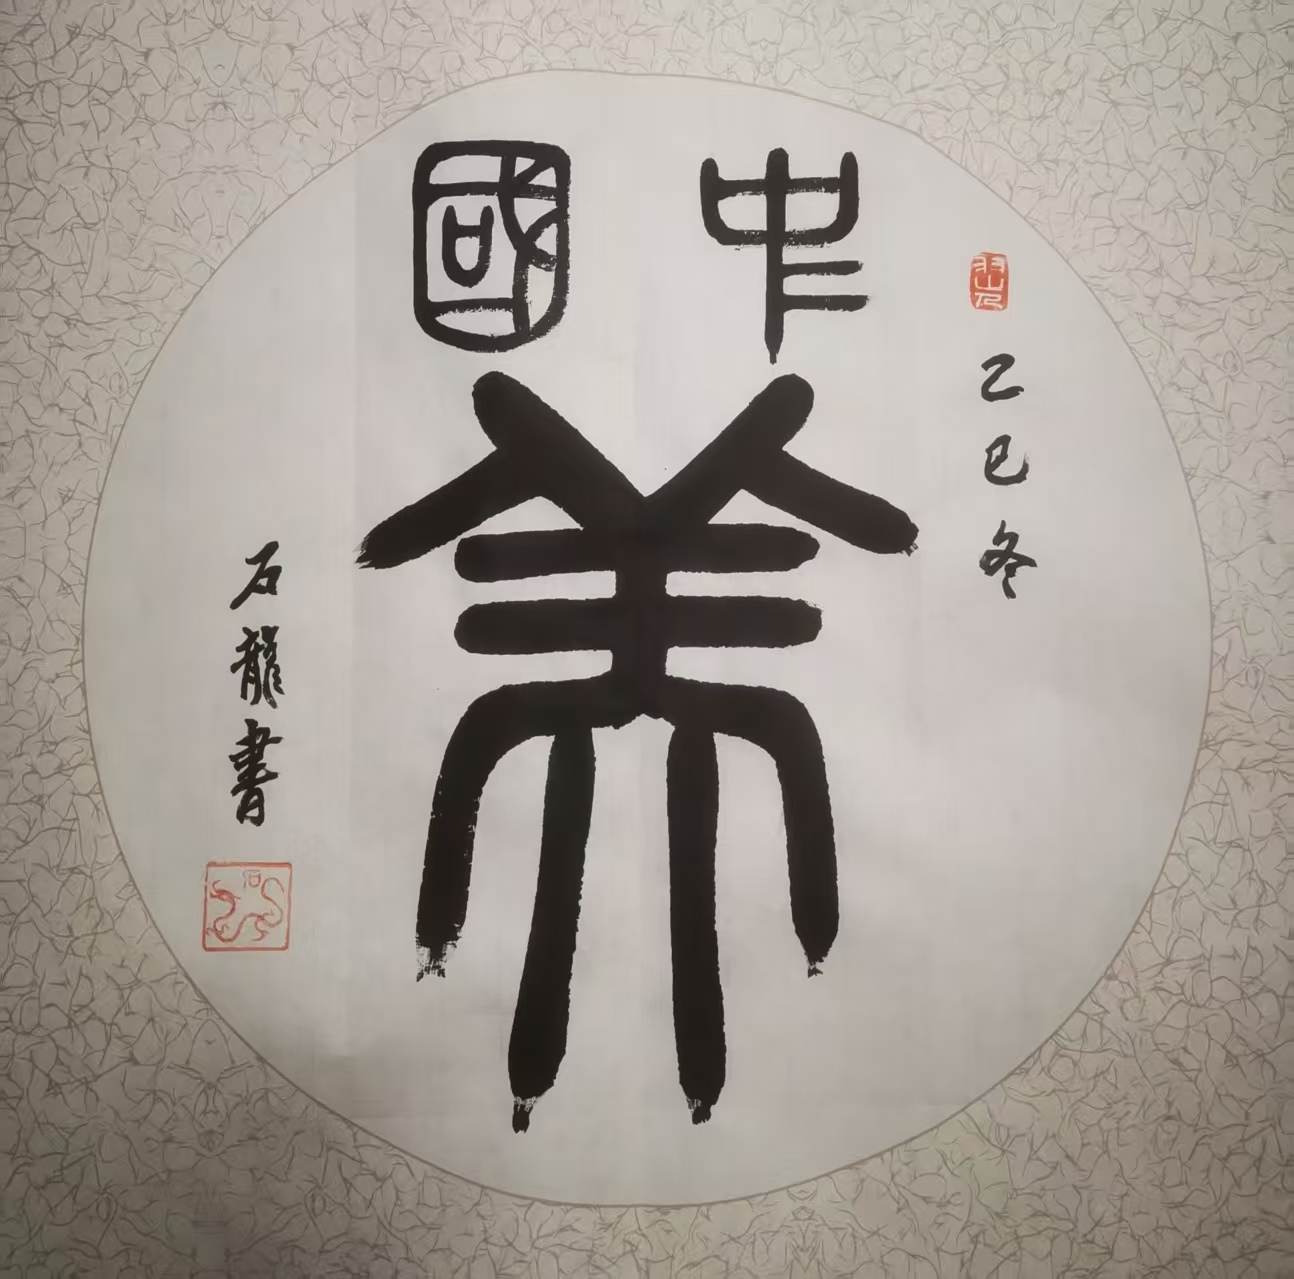 中國
美
乙巳冬
石龍書
石